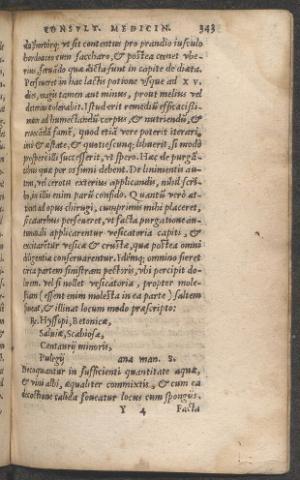 CONSVLT. MEDICIN. 343
vt sit contentus pro prandio iusculo
hordeaceo cum saccharo, & postea cenet vbe-
rius, seruãdo quæ dicta sunt in capite de diæta.
Perseueret in hac lactis potione vsque ad x v.
dies, magis tamen aut minus, prout melius vel
deterius tolerabit. Istud erit remediũ efficacissi-
mum ad humectandũ corpus, & nutriendũ, &
famẽ, quod etiã vere poterit iterari,
ini & æstate, & quotiescunq; libuerit, si modò
prospere illi successerit, vt spero. Hæc de purgã-
tibus quæ per os sumi debent. De linimentis au-
tem, vel cerotis exterius applicandis, nihil scri-
bo, in illis enim parũ confido. Quantũ verò at-
tinet ad opus chirurgi, cum primis mihi placeret,
si cauterbus perseueret, vt facta purgatione an-
nuali applicarentur vesicatoria capiti, &
excitarẽtur vesicæ & crustæ, quæ postea omni
diligentia conseruarentur. Idẽmq; omnino fieret
circa partem sinistram pectoris, vbi percipit do-
lorem. vel si nollet vesicatoria, propter mole-
stiam (essent enim molesta in ea parte) saltem
foueat, & illinat locum modo præscripto:
℞. Hyssopi, Betonicæ,
Saluiæ, Scabiosæ,
Centaurij minoris,
Pulegij ana man. 3.
Decoquantur in sufficienti quantitate aquæ,
& vini albi, æqualiter commixtis, & cum ea
decoctione calida foueatur locus cum spongijs.
Y 4 Facta